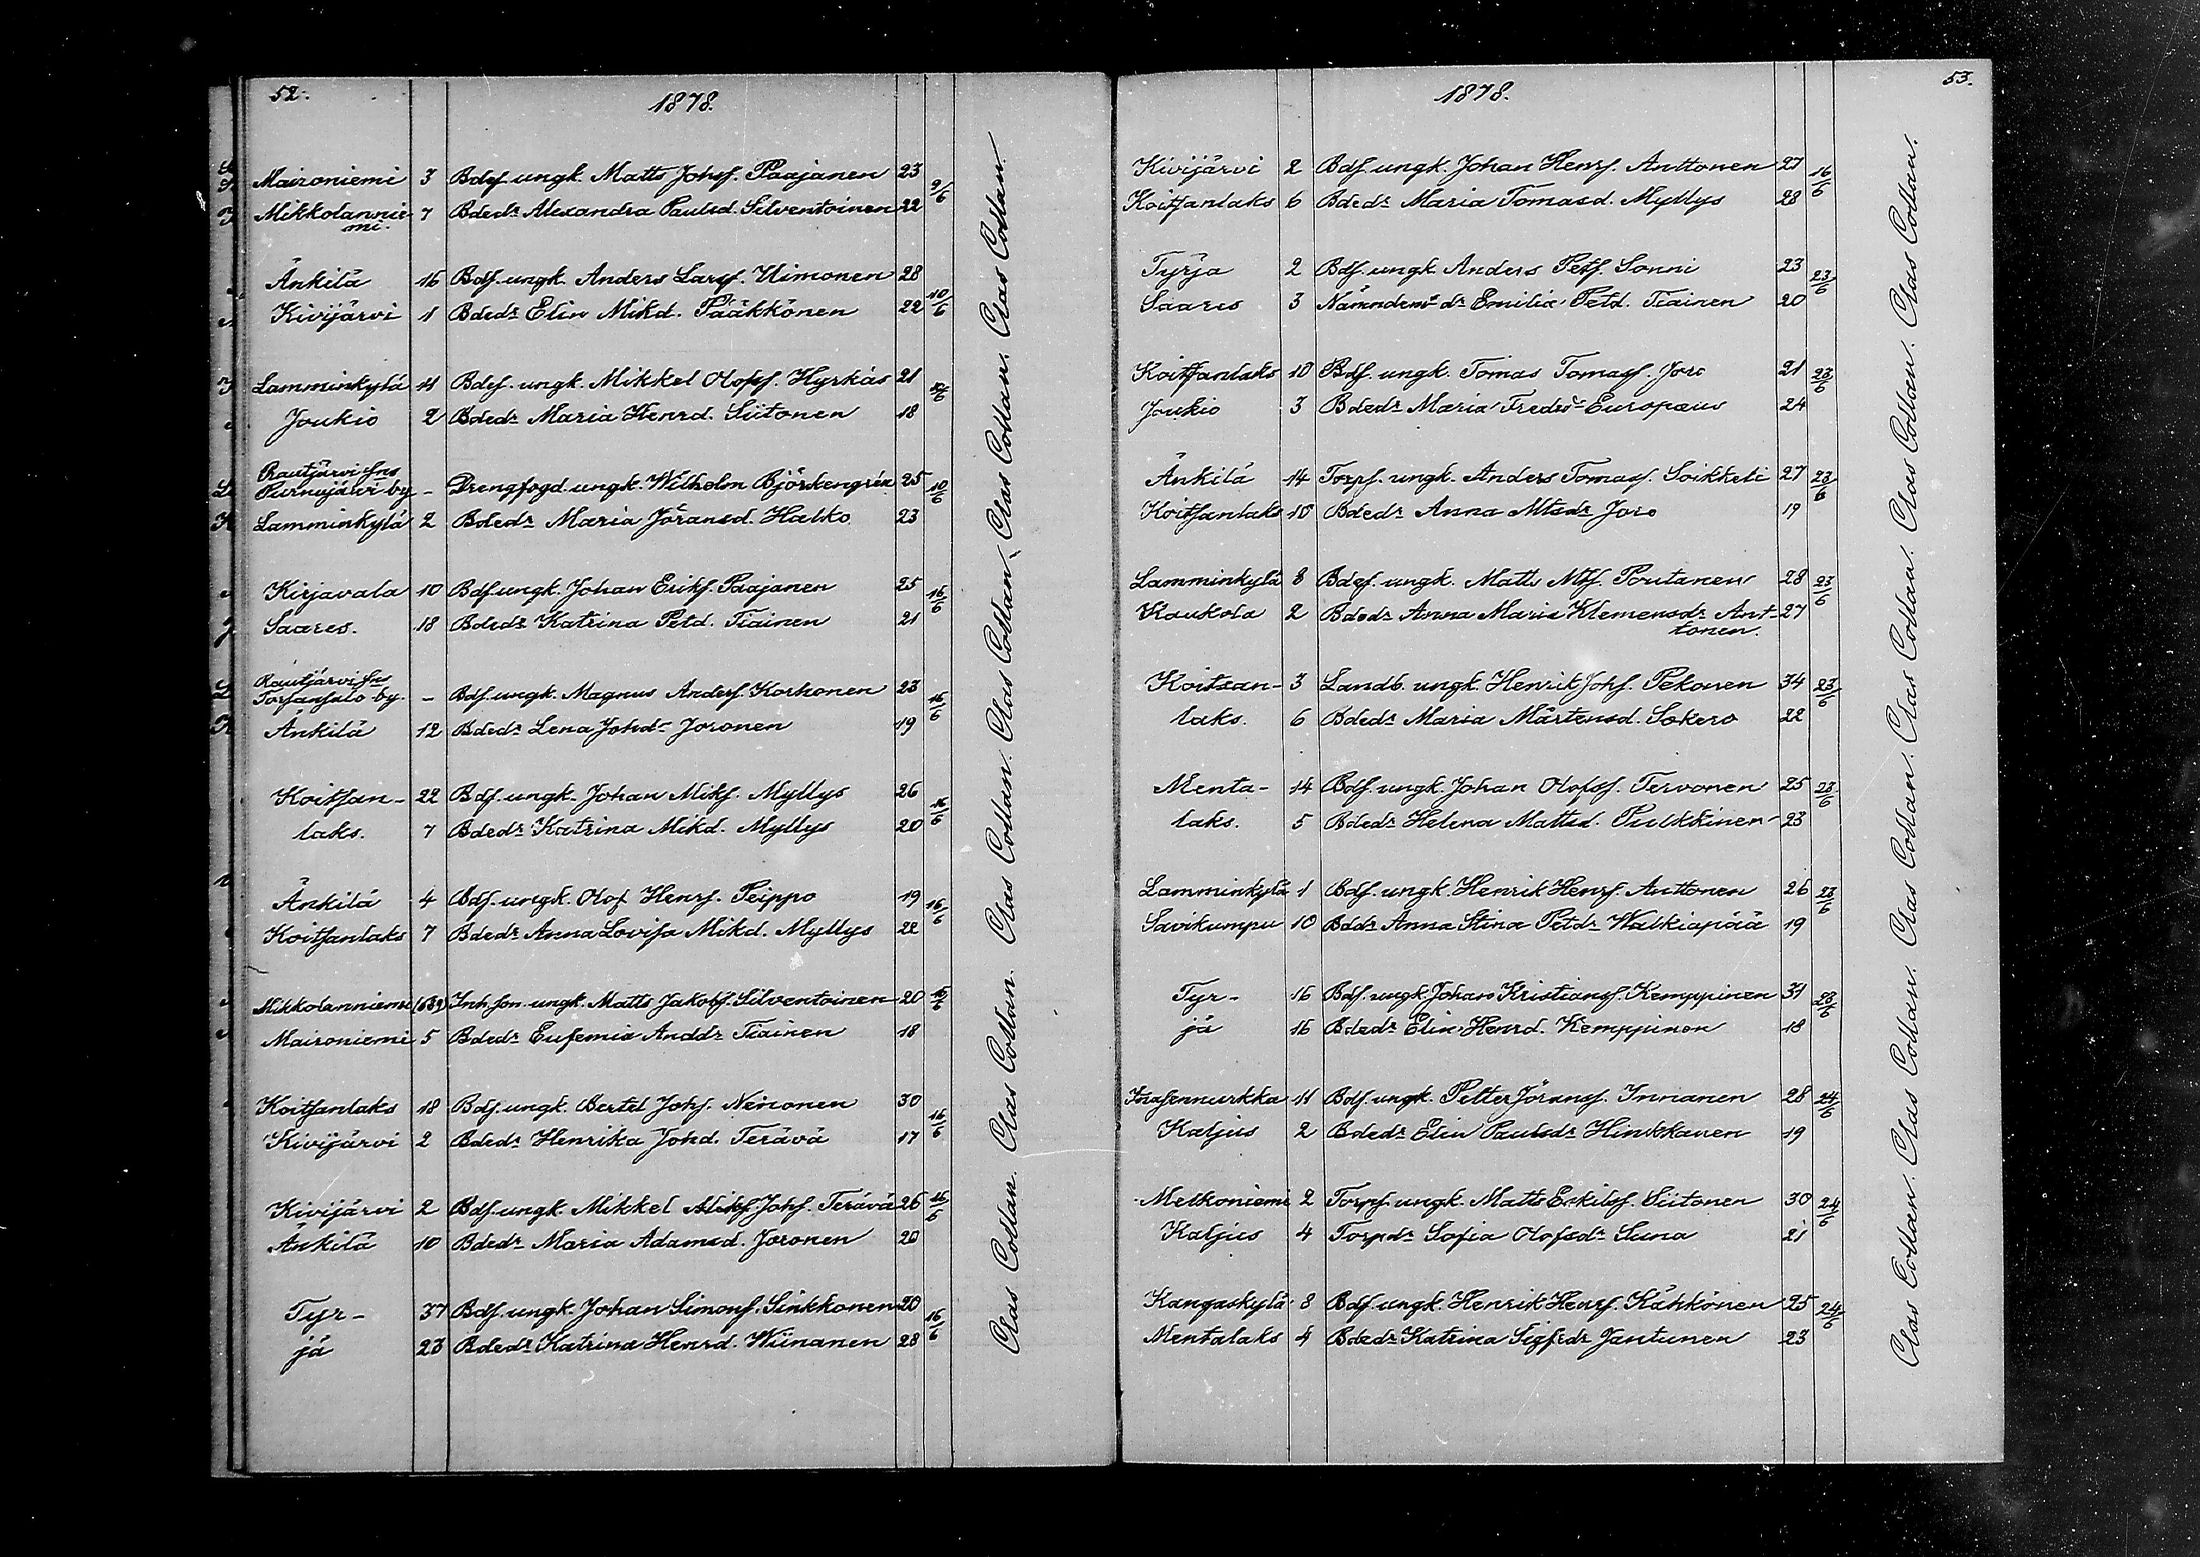 52.
1878.
Maironiemi 3 Bdsf. ungk. Matts Johsf. Paajanen 23 9/6
Mikkolannie- 7 Bdedr Alexandra Paulsd. Silventoinen 22
mi.
Änkilä 16 Bdsf. ungk. Anders Larsf. Uimonen 28 10/6
Kivijärvi 1 Bdedr Elin Mikd. Pääkkönen 22
Lamminkylä 11 Bdsf. ungk. Mikkel Olofsf. Hyrkäs 21
Joukio 2 Bdedr Maria Henrd. Siitonen 18
Rautjärvi sns
Purnujärvi by – Drengfogd. ungk. Wilhelm Björkengrén 25 10/6
Lamminkylä 2 Bdedr Maria Jöransd. Halko 23
Kirjavala 10 Bdsf. ungk. Johan Eriksf. Paajanen 25 16/6
Saares. 18 Bdedr Katrina Petd. Tiainen 21
Rautjärvi sns
Torsansalo by. – Bdsf. ungk. Magnus Andersf. Korhonen 23 16/6
Änkilä 12 Bdedr Lena Johdr Joronen 19
Koitsan- 22 Bdsf. ungk. Johan Miksf. Myllys 26 16/6
laks. 7 Bdedr Katrina Mikd. Myllys 20
Änkilä 4 Bdsf. ungk. Olof Henrsf. Peippo 19 16/6
Koitsanlaks 7 Bdedr Anna Lovisa Mikd. Myllys 22
Mikkolanniemi (639) Inh. son. ungk. Matts Jakobsf. Silventoinen 20 16/6
Maironiemi 5 Bdedr Eufemia Anddr Tiainen 18
Koitsanlaks 18 Bdsf. ungk. Bertel Johsf. Neinonen 30 16/6
Kivijärvi 2 Bdedr Henrika Johd. Terävä 17
Kivijärvi 2 Bdsf. ungk. Mikkel Johsf. Terävä 26 16/6
Änkilä 10 Bdedr Maria Adamsd. Joronen 20
Tyr- 37 Bdsf. ungk. Johan Simonsf. Sinkkonen 20 16/6
jä 23 Bdedr Katrina Henrd. Wiinanen 28
Clas Collan. Clas Collan. Clas Collan. Clas Collan. Clas Collan. Clas Collan. Clas Collan.
53.
1878.
Kivijärvi 2 Bdsf. ungk. Johan Henrsf. Anttonen 27 16/6
Koitsanlaks 6 Bdedr Maria Tomasd. Myllys 28
Tyrjä 2 Bdsf. ungk. Anders Petsf. Sonni 23 23/6
Saares 3 Nämndems dr Emilia Petd. Tiainen 20
Koitsanlaks 10 Bdsf. ungk. Tomas Tomasf. Joro 21 23/6
Joukio 3 Bdedr Maria Fredrdr Europæus 24
Änkilä 14 Torpf. ungk. Anders Tomasf. Soikkeli 27 23/6
Koitsanlaks 10 Bdedr Anna Mtsdr Joro 19
Lamminkylä 8 Bdsf. ungk. Matts Mtsf. Poutanen 28 23/6
Kaukola 2 Bdedr Anna Maria Klemensdr Ant- 27
tonen.
Koitsan- 3 Landb. ungk. Henrik Johsf. Pekonen 34 23/6
laks. 6 Bdedr Maria Mårtensd. Sokero 22
Menta- 14 Bdsf. ungk. Johan Olofsf. Tervonen 25 23/6
laks. 5 Bdedr Helena Mattsd. Pulkkinen 23
Lamminkylä 1 Bdsf. ungk. Henrik Henrsf. Anttonen 26 23/6
Savikumpu 10 Bddr Anna Stina Petdr Walkiapää 19
Tyr- 16 Bdsf. ungk. Johan Kristiansf. Kemppinen 31 23/6
jä 16 Bdedr Elin Henrd. Kemppinen 18
11 Bdsf. ungk. Petter Jöransf. Innanen 28 24/6
Kaljus 2 Bdedr Elin Paulsdr Hinkkanen 19
Melkoniemi 2 Torpf. ungk. Matts Erkilsf. Siitonen 30 24/6
Kaljus 4 Torpdr Sofia Olofsdr Suna 21
Kangaskylä 8 Bdsf. ungk. Henrik Henrsf. Kähkönen 25 24/6
Mentalaks 4 Bdedr Katrina Sigfrdr Jantunen 23
Clas Collan. Clas Collan. Clas Collan. Clas Collan. Clas Collan. Clas Collan. Clas Collan.